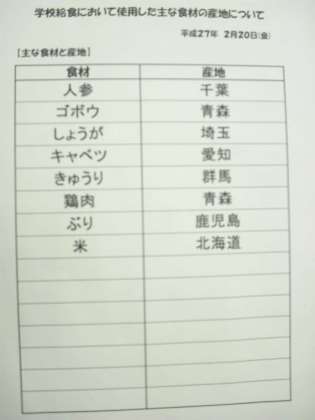 学校給食において使用した主な食材の産地について
平成27年 2月20日(金)
[主な食材と産地]
食材 産地
人参 千葉
ゴボウ 青森
しょうが 埼玉
キャベツ 愛知
きゅうり 群馬
鶏肉 青森
ぶり 鹿児島
米 北海道